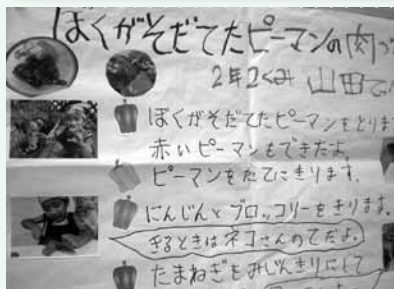 ぼくがそだてたピーマンの肉づ
2年2くみ 山田
ぼくがそだてたピーマンをとりま
赤いピーマンもできたよ。
ピーマンをたてにきります。
にんじんとブロッコリーをきります。
きるときはネコさんのてだよ。
たまねぎをみじんきりにして